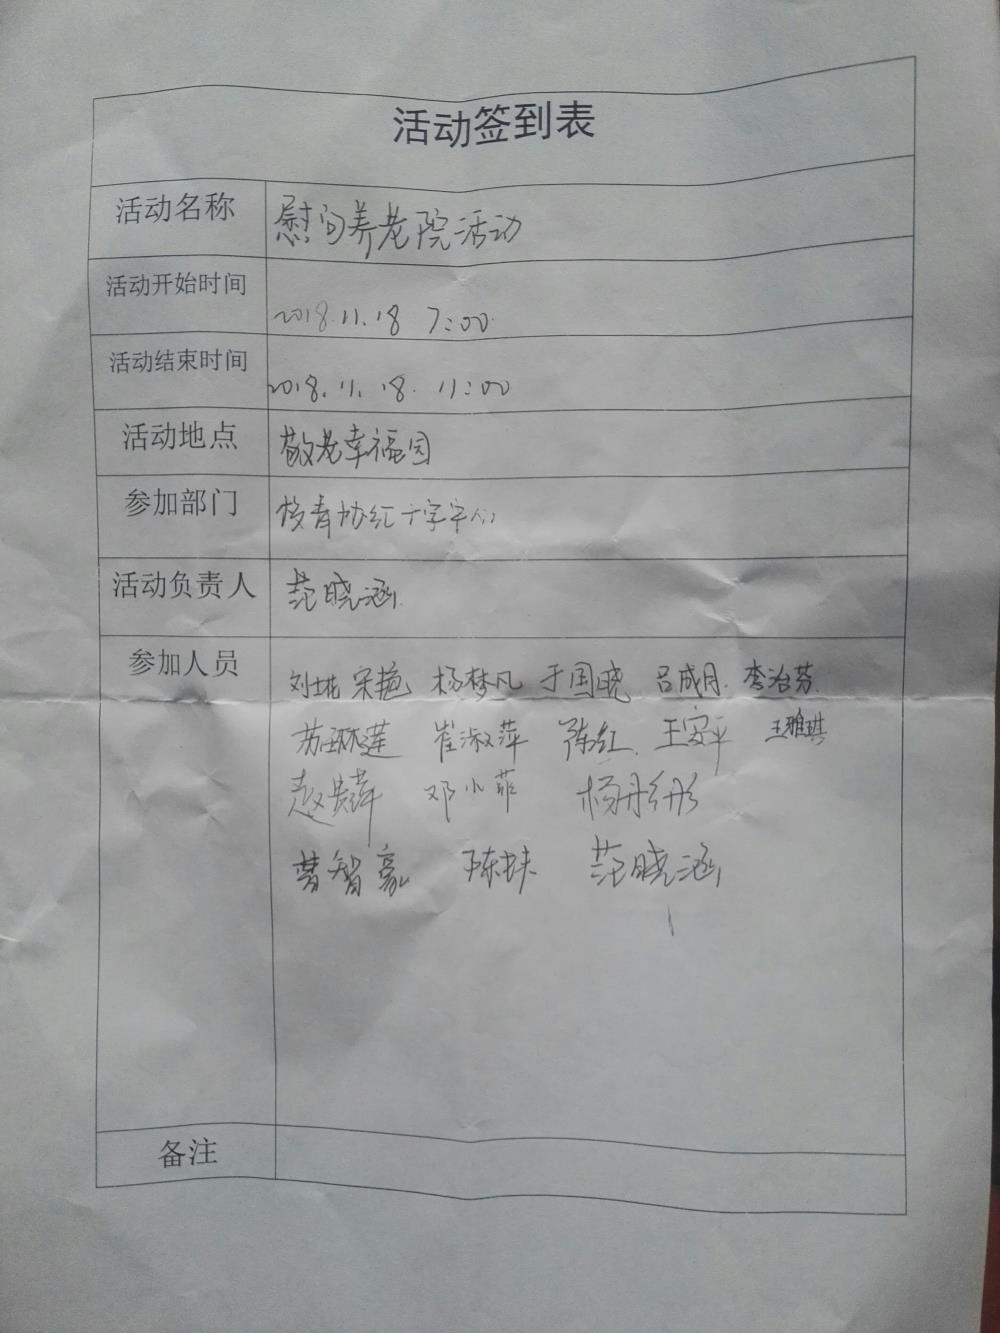 活动签到表
活动名称 慰问养老院活动
活动开始时间 2018.11.18 7:00
活动结束时间 2018.11.18. 11:00
活动地点 敬老幸福园
参加部门 校青协红十字
活动负责人 范晓涵
参加人员 刘垅 宋艳 杨梦凡 于国晓 吕成月 李治芬
苏琳莲 崔淑萍 陈红 王安平 王雅琪
赵贵萍 邓小菲 杨彤彤
曹智豪 陈妹 范晓涵
备注